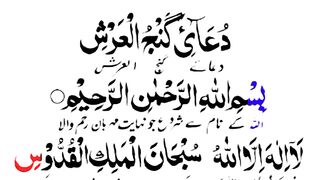 دُعَائِ گَنْجُ الْعَرْشِ
دعائے گنج العرش
بِسْمِ اللّٰهِ الرَّحْمٰنِ الرَّحِيْمِ
اللہ کے نام سے شروع جو نہایت مہربان رحم والا
لَآ اِلٰهَ اِلَّا اللّٰهُ سُبْحَانَ الْمَلِكِ الْقُدُّوْسِ